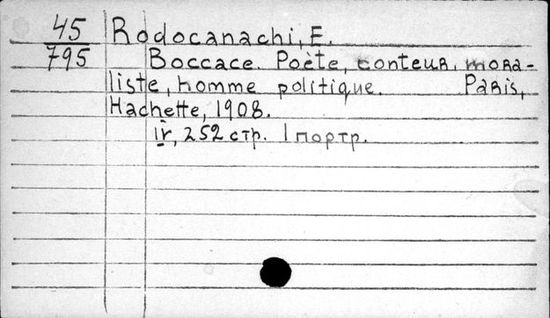 45 Rodocanachi, E.
795 Boccace. Poète, conteur, mora-
liste, homme politique. Paris,
Hachette, 1908.
IV, 252 стр. 1 портр.